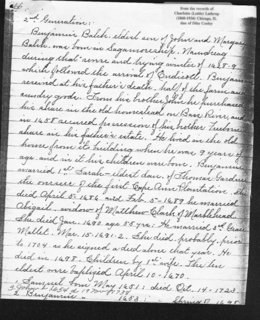 from the records of
2nd Generation:
Benjamin Balch, eldest son of John and Margaret
Balch, was born in Sagamoreship, Naumkeag
during that severe and trying winter of 1628-9
which followed the arrival of Endicott. Benjamin
received at his father's death, half of the farm and
sundry goods. From his brother John he purchased
his share in the old homestead on Bass River, and
in 1658 acquired possession of his brother Freeborn's
share in his father's estate. He lived in the old
house from its building when he was 9 years of
age and in it his children were born. Benjamin
married 1st Sarah eldest dau. of Thomas Gardner
the overseer of the first Cape Ann Plantation. She
died April 5, 1686 and Feb. 5-1689 he married
Abigail widow of Matthew Clark of Marblehead
She died Jan. 1690 aged 55 yrs. He married 3rd Grace
Mallet. Mar. 15-1691-2. She died, probably, prior
to 1704 as he signed a deed alone that year. He
died in. Children by 1st wife. The ten
eldest were baptized April 10-1670.
Samuel born May 1651. died Oct. 14-1723.
2. Benjamin